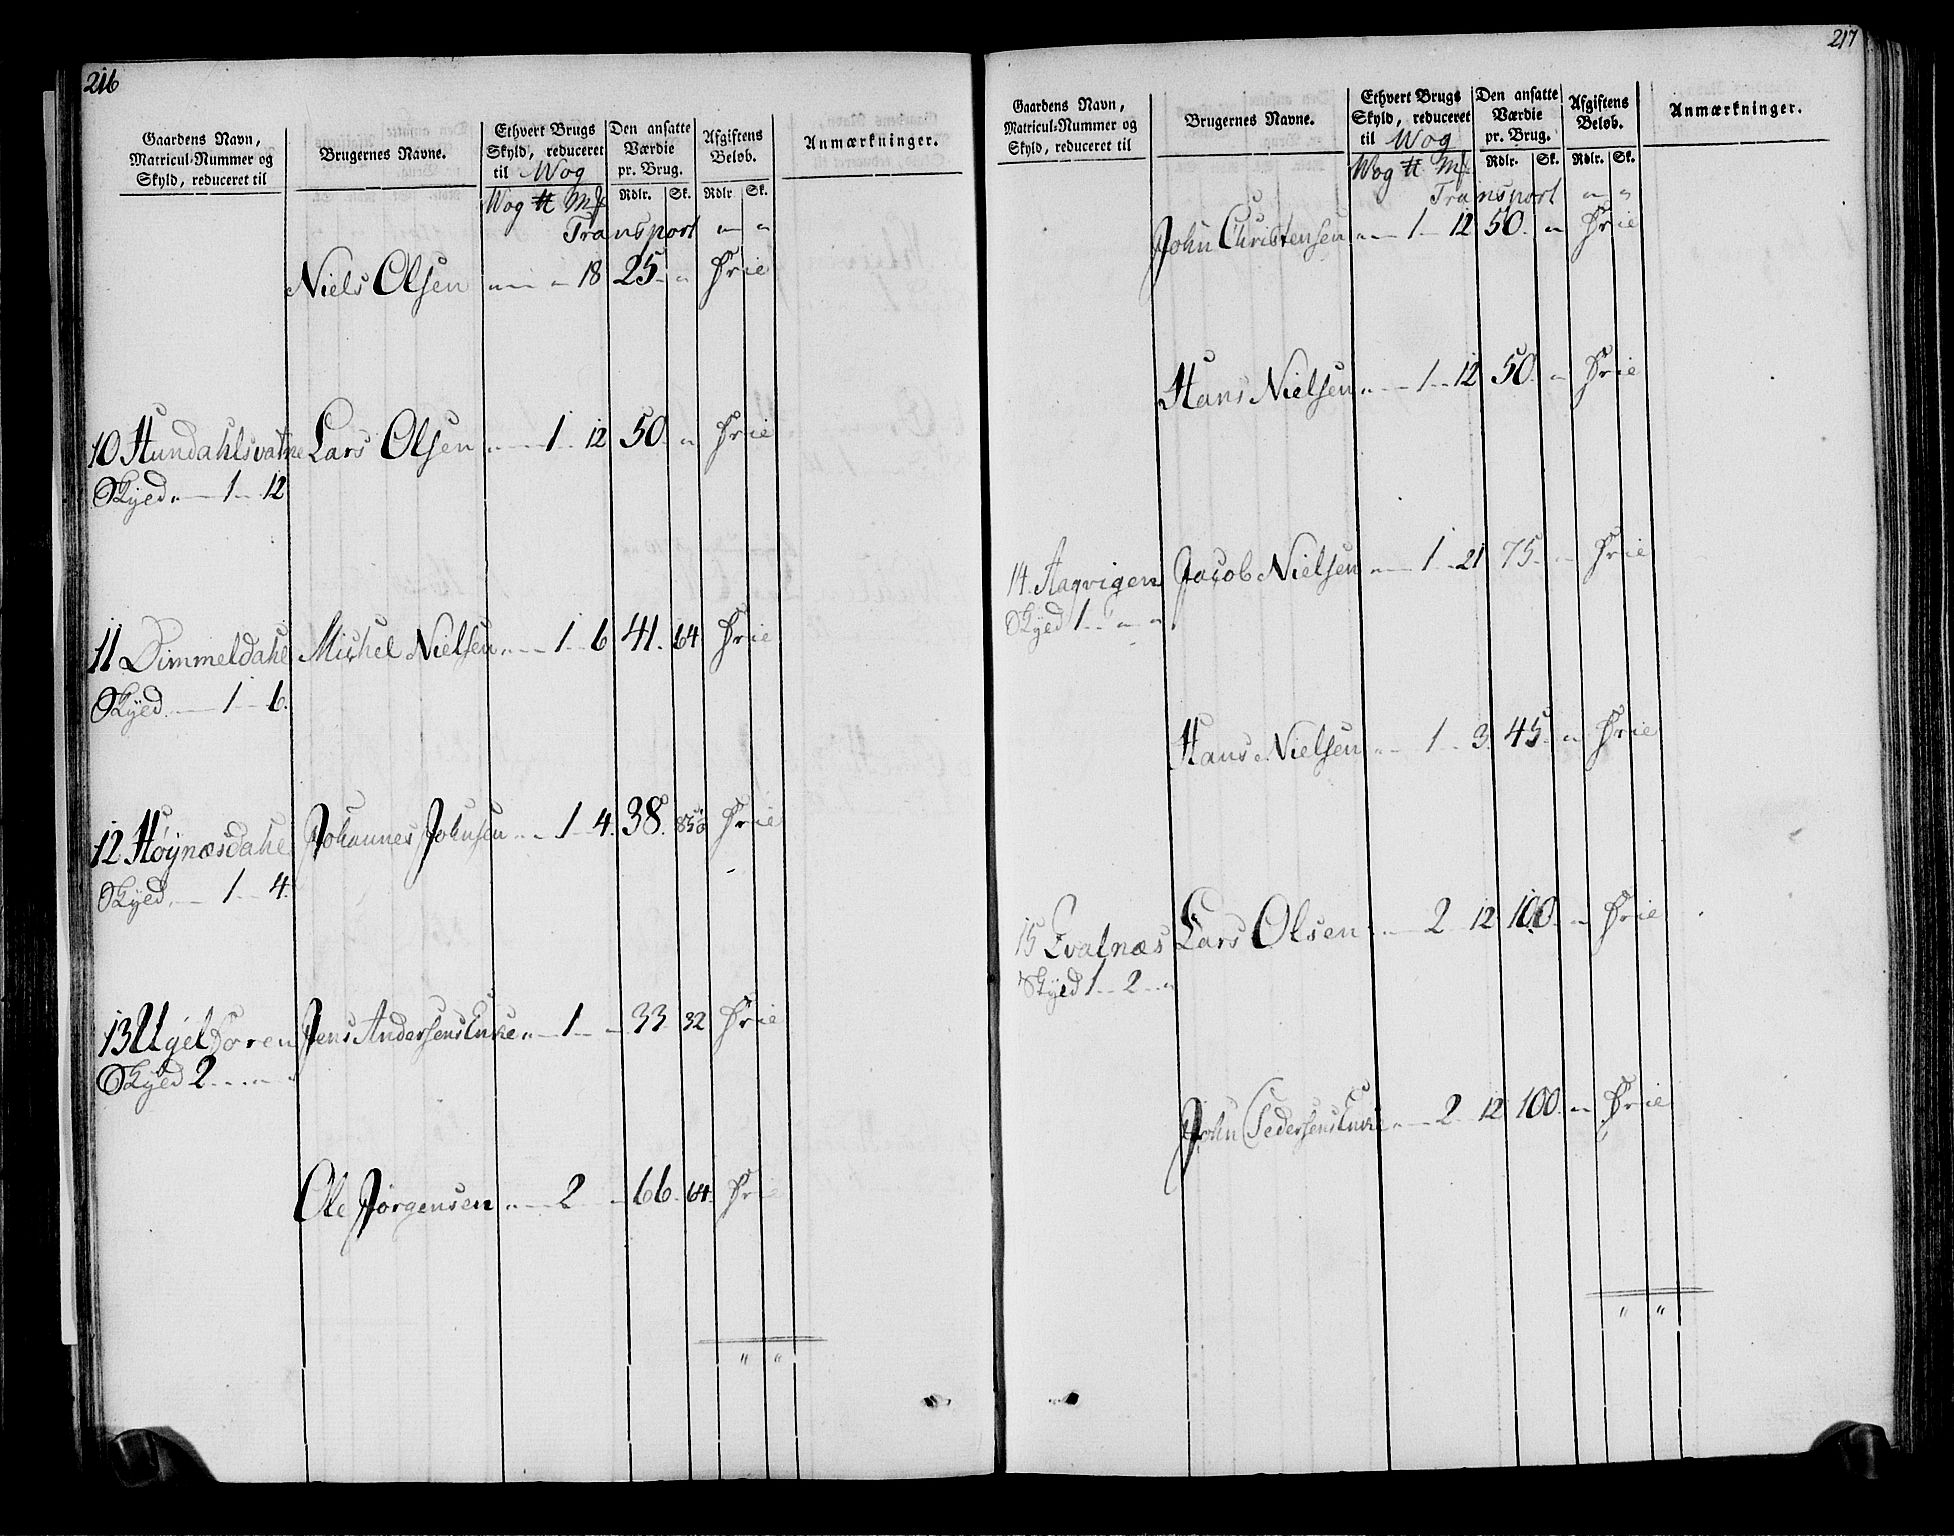 216
Gaardens Navn, Matricul-Nummer og Skyld, reduceret til
Brugernes Navne.
Ethvert Brugs Skyld, reduceret til Wog
Den ansatte Værdie pr. Brug.
Afgiftens Beløb.
Anmærkninger.
Wog ℔ Mk Rdlr. Sk. Rdlr Sk.
Transport " "
Niels Olsen " " 18 25 " Frie
10 Hundahlsvatne Lars Olsen " 1 12 50 " Frie
Skyld " 1 12
11 Dimmeldahl Michel Nielsen " 1 6 41 64 Frie
Skyld 1 6
12 Høynæsdahl Johannes Johnsen " 1 4 38 85 Frie
Skyld 1 4
13 Ugelboren Jens Andersens Enke " 1 " 33 32 Frie
Skyld 2 " "
Ole Jørgensen " 2 " 66 64 Frie
" "
217
Gaardens Navn, Matricul-Nummer og Skyld, reduceret til
Brugernes Navne.
Ethvert Brugs Skyld, reduceret til Wog
Den ansatte Værdie pr. Brug.
Afgiftens Beløb.
Anmærkninger.
Wog ℔ Mk Rdlr. Sk. Rdlr. Sk.
Transport " "
John Christensen " 1 12 50 " Frie
Hans Nielsen " 1 12 50 " Frie
14 Aagvigen Jacob Nielsen " 1 21 75 " Frie
Skyld 1 " "
Hans Nielsen " 1 3 45 " Frie
15 Qvalnæs Lars Olsen " 2 12 100 " Frie
Skyld 1 2 "
John Pedersens Enke " 2 12 100 " Frie
" "